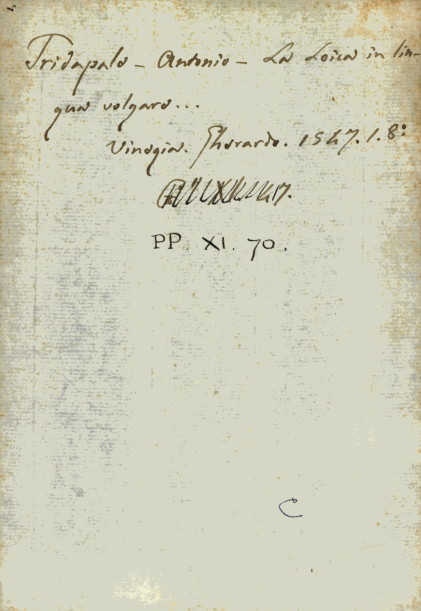 Tridapalo - Antonio - La Loica in lin-
gua volgare...
Vinegia. Gherardo. 1547. 1. 8:
PP. XI. 70.
C